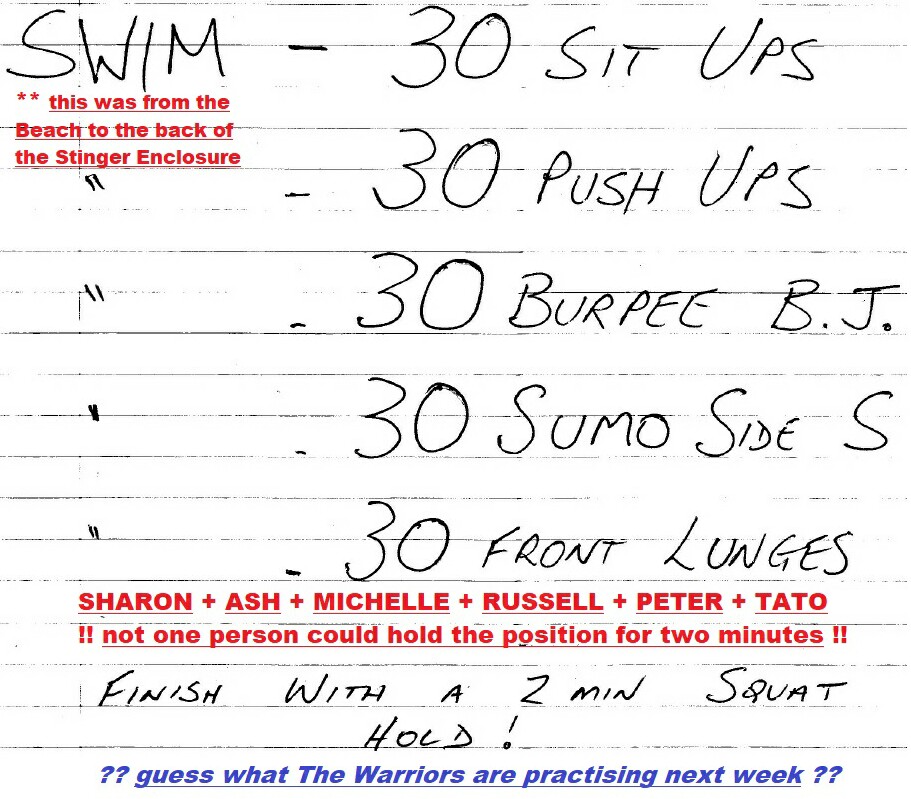 SWIM - 30 SIT UPS
** this was from the
Beach to the back of
the Stinger Enclosure
" - 30 PUSH UPS
" - 30 BURPEE B.J.
" - 30 SUMO SIDE S
" - 30 FRONT LUNGES
SHARON + ASH + MICHELLE + RUSSELL + PETER + TATO
!! not one person could hold the position for two minutes !!
FINISH WITH A 2 MIN SQUAT
HOLD!
?? guess what The Warriors are practising next week ??